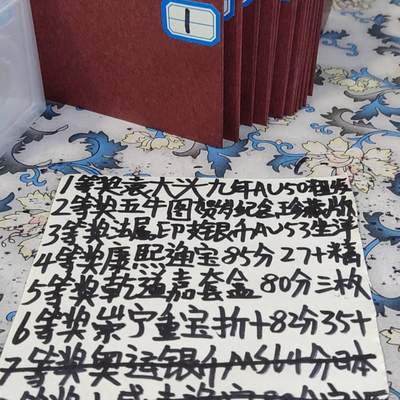 1
1等奖袁大头九年AU50粗发
2等奖五牛图贺岁纪念
3等奖法属印支银币AU53坐洋
4等奖康熙 宝85分27+
5等奖乾 嘉套盒80分三枚
6等奖崇宁重宝折十82分35+
7等奖奥运银币 64分日本